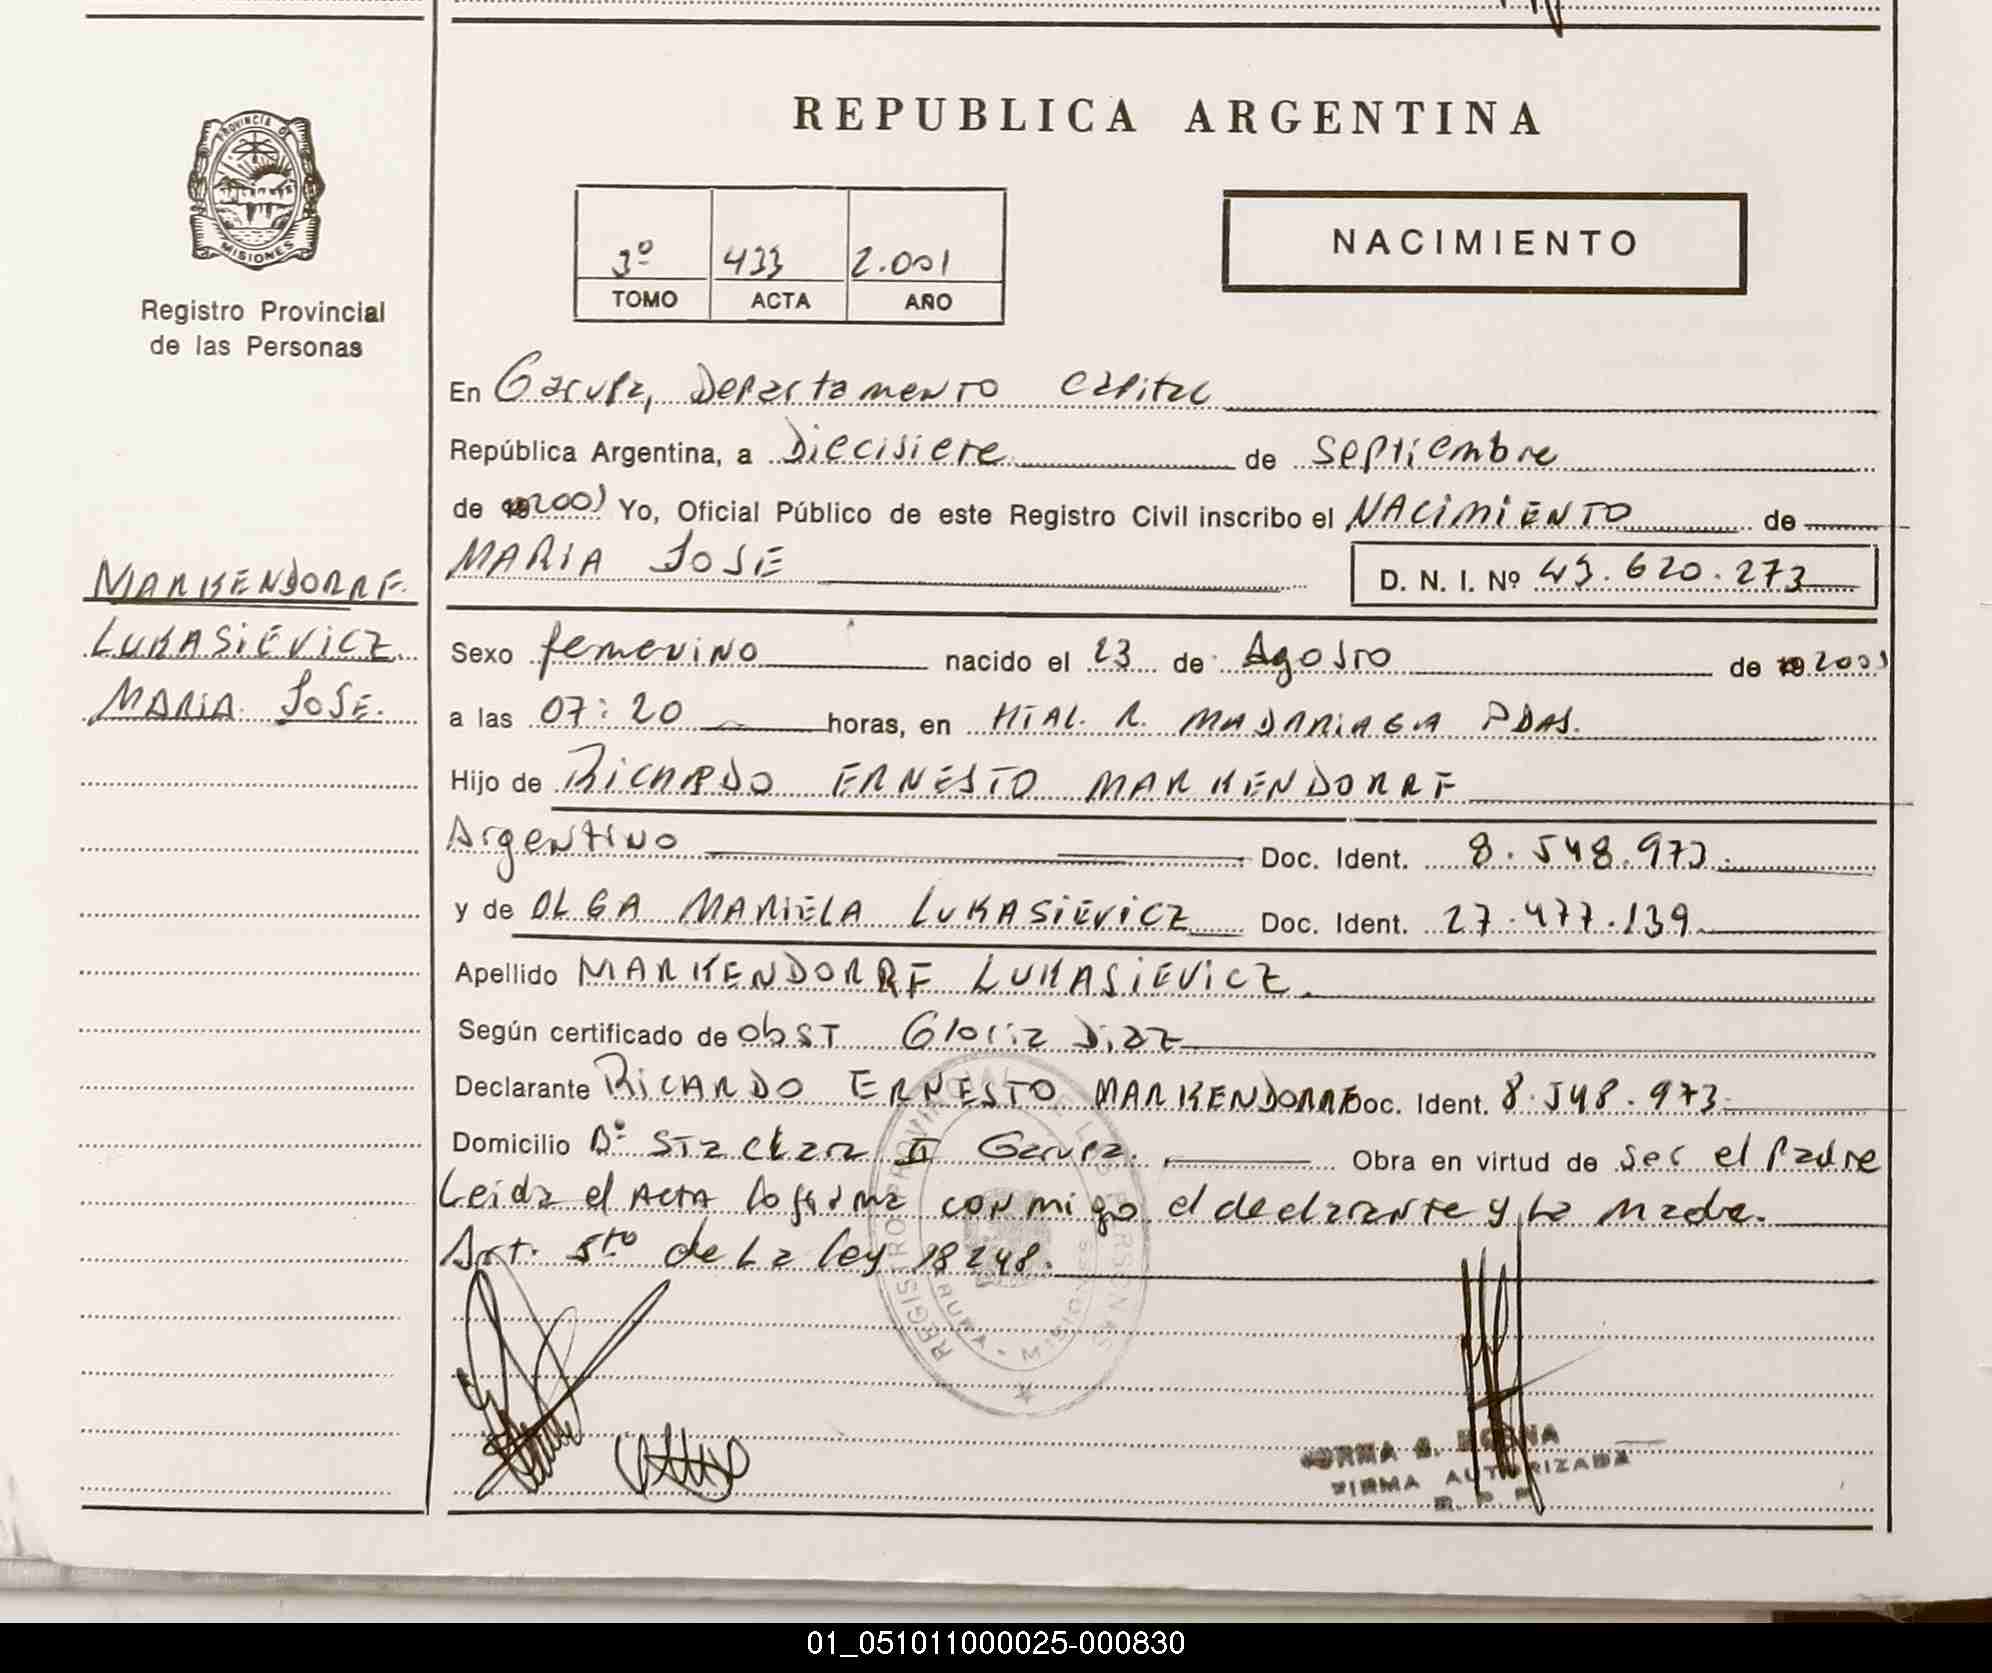 REPUBLICA ARGENTINA
PROVINCIA DE
MISIONES
Registro Provincial
de las Personas
3º 433 2.001
TOMO ACTA AÑO
NACIMIENTO
En Garupa, Departamento Capital
República Argentina, a Diecisiete de Septiembre
de 2001 Yo, Oficial Público de este Registro Civil inscribo el NACIMIENTO de
MARIA JOSE D. N. I. Nº 43.620.273
MARKENDORFF
LUKASIEVICZ
MARIA JOSE.
Sexo femenino nacido el 23 de Agosto de 2001
a las 07:20 horas, en HTAL. R. MADARIAGA PDAS.
Hijo de RICARDO ERNESTO MARKENDORFF
Argentino Doc. Ident. 8.548.973.
y de OLGA MARIELA LUKASIEVICZ Doc. Ident. 27.477.139
Apellido MARKENDORFF LUKASIEVICZ
Según certificado de obST Gloria Diaz
Declarante RICARDO ERNESTO MARKENDORFF Doc. Ident. 8.548.973
Domicilio Bº Sta Clara II Garupa. Obra en virtud de ser el Padre
Leida el ACTA la firma conmigo el declarante y La Madre.
Art. 5to de La ley 18248.
REGISTRO PROVINCIAL DE LAS PERSONAS
MISIONES
FIRMA AUTORIZADA
R. P. P.
01_051011000025-000830